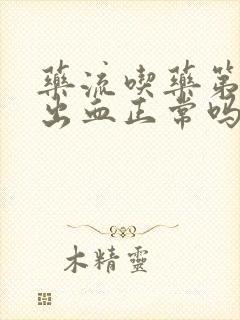 藥流喫藥第
出血正常吗
木精靈